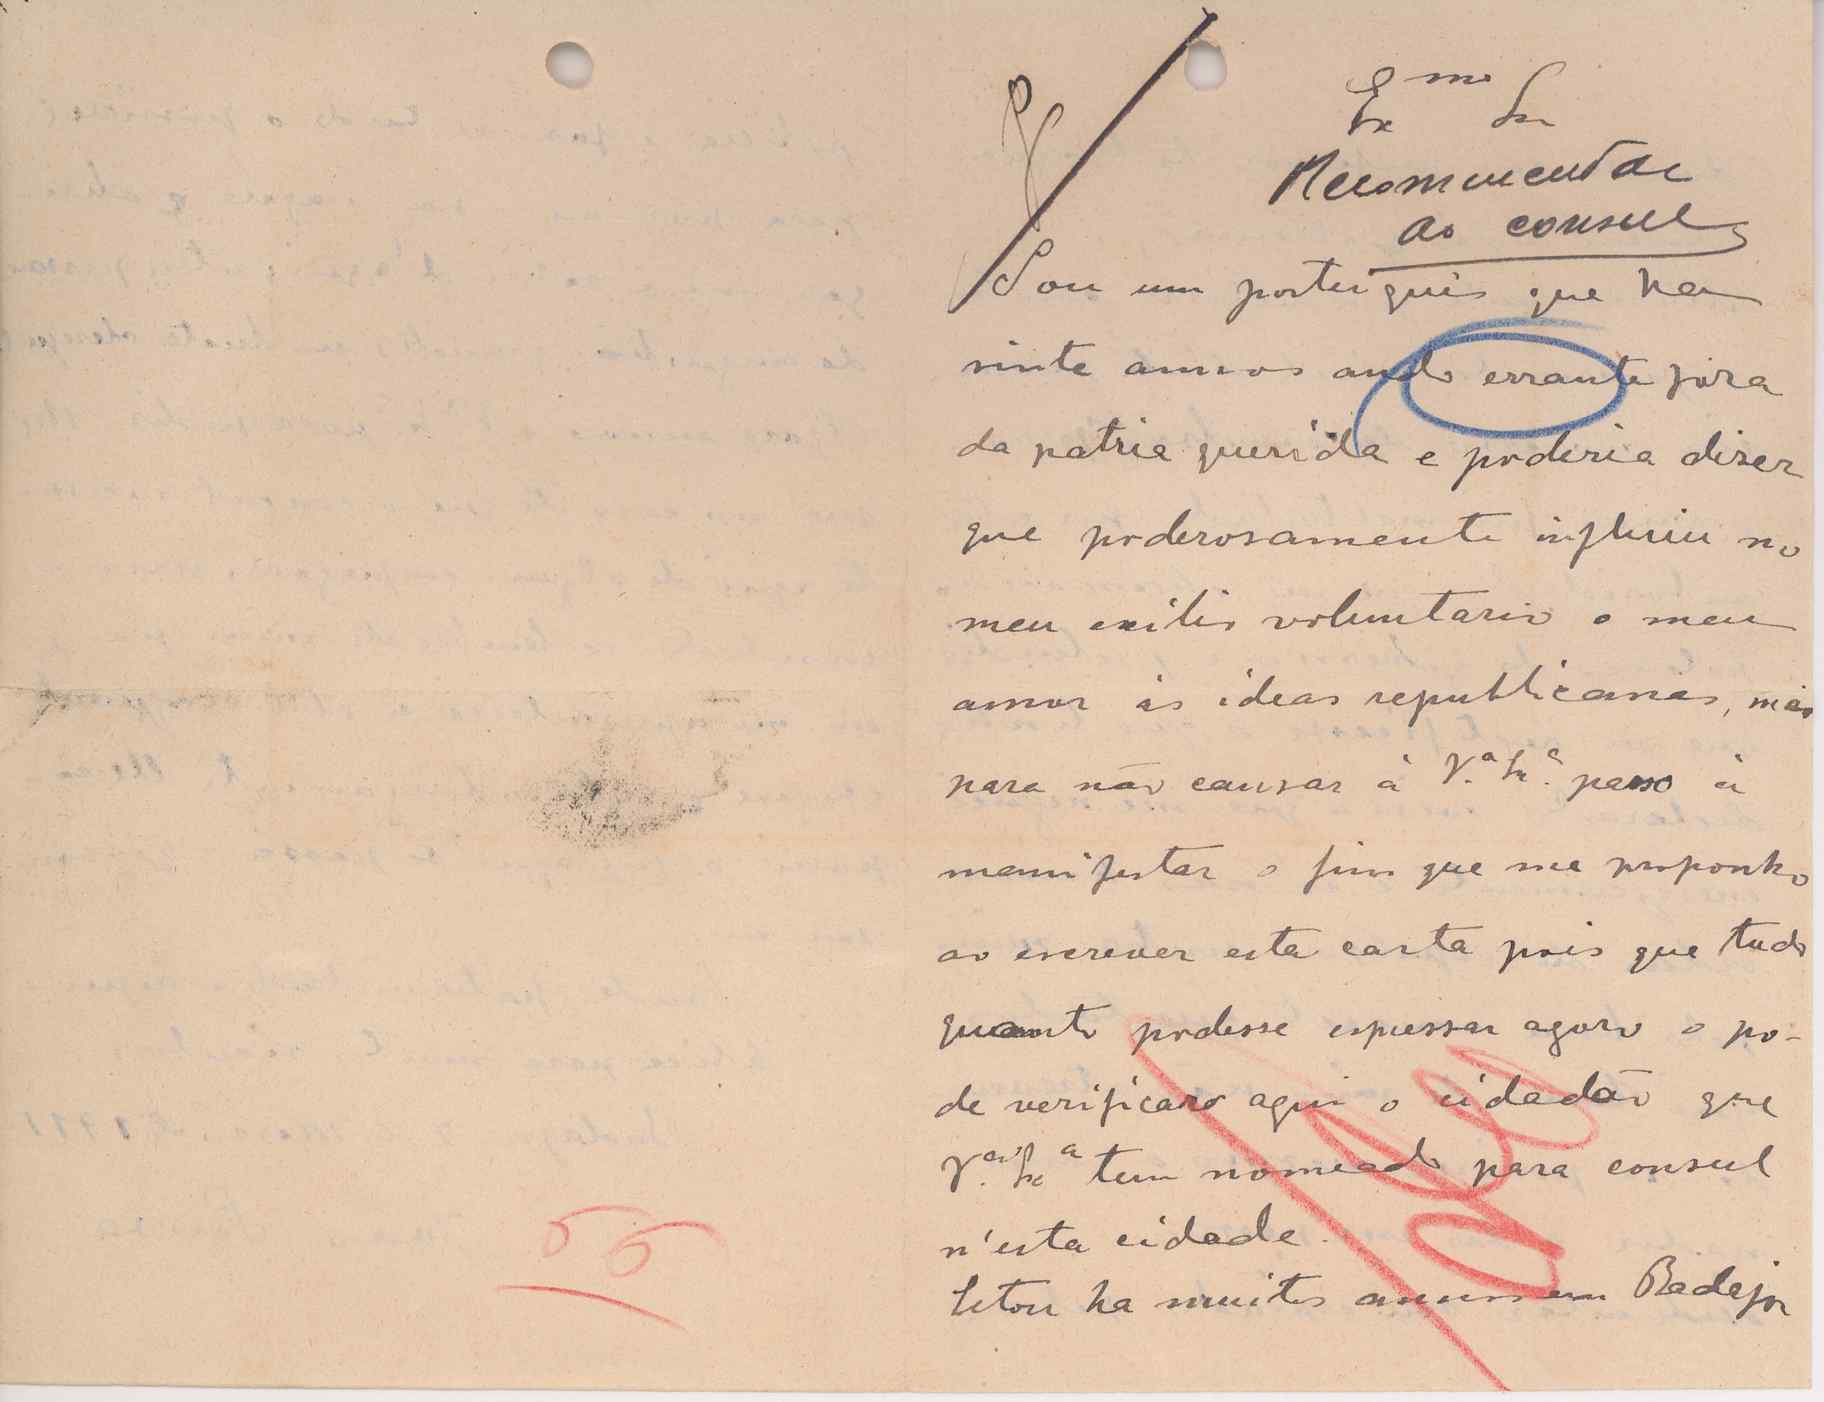 Exmo Snr
Recommendar
ao consul
Sou um portuguis que ha
vinte annos ando errante fora
da patria querida e poderia diser
que poderosamente influiu no
meu exilio voluntario o meu
amor ás ideas republicanas, mas
para não causar á V.ª Ex.ª passo á
manifestar o fim que me proponho
ao escrever esta carta pois que tudo
quanto podesse expressar agora o po-
de verificaro aqui o cidadão que
V.ª Ex.ª tem nomeado para consul
n'esta cidade.
Estou ha muitos annos em Badajoz